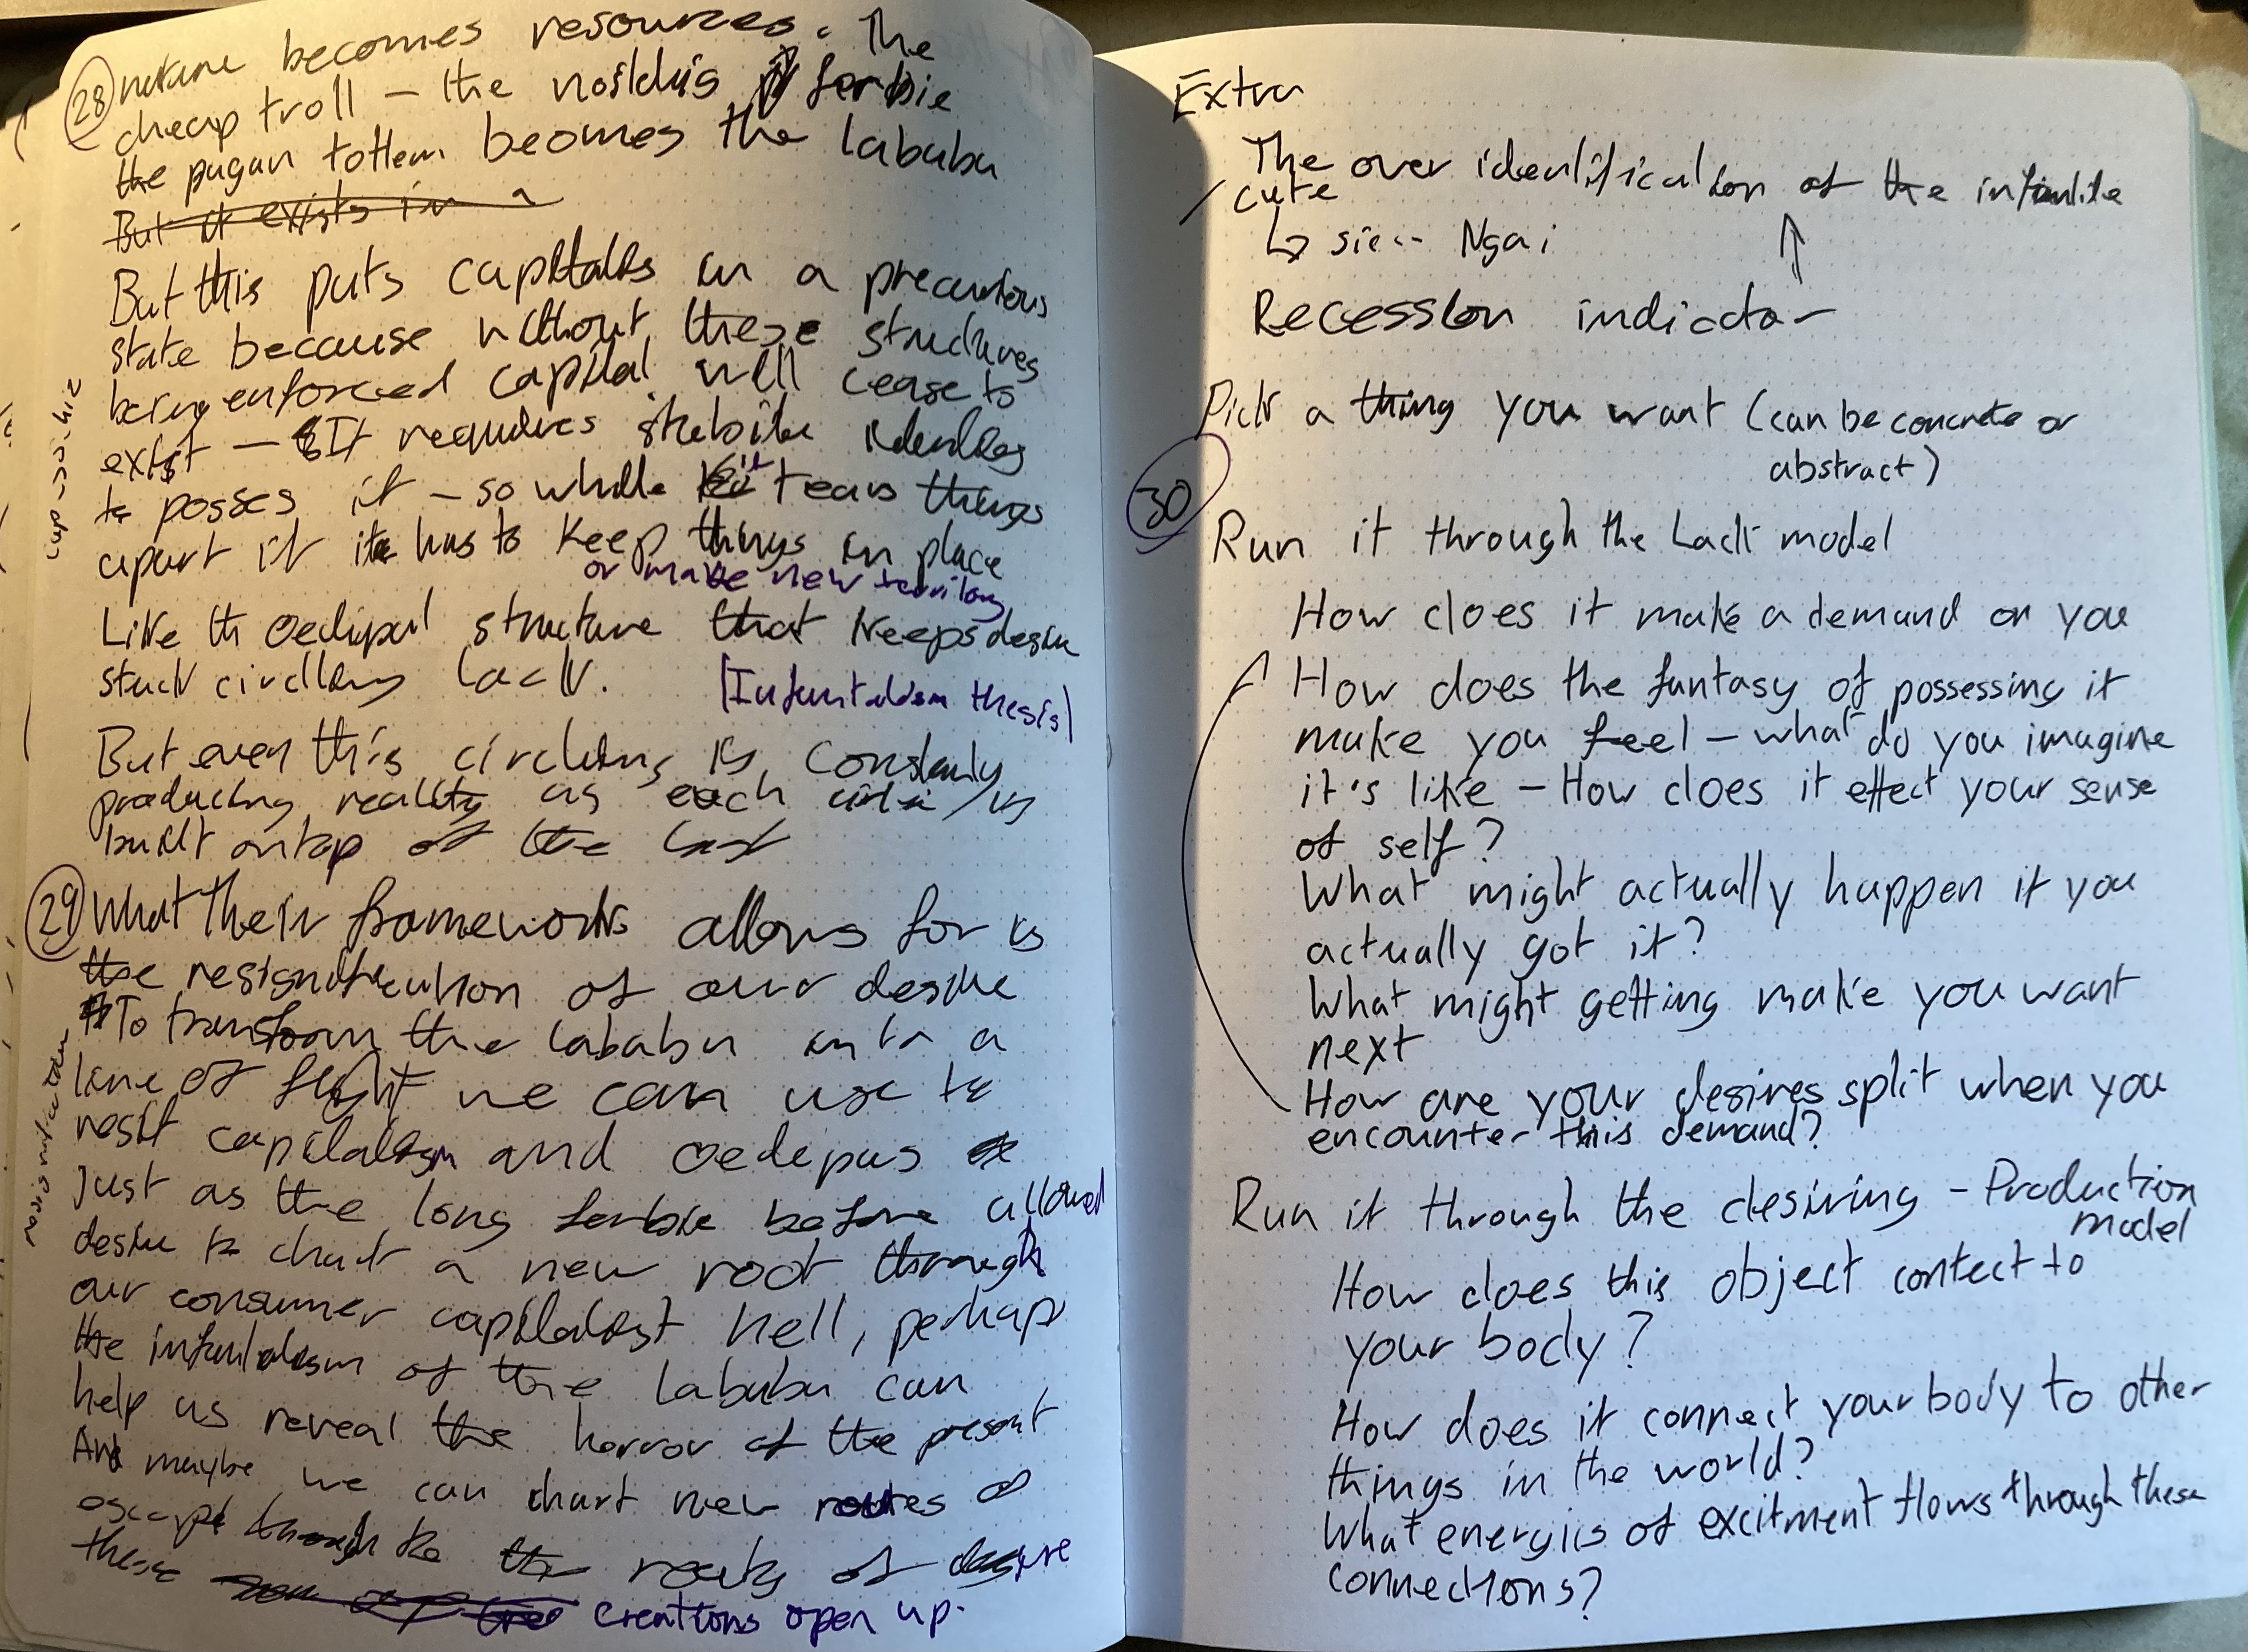 28 nature becomes resources. The
cheap troll — the noildis furbie
the pagan tottem becomes the labubu
But it exists in a
But this puts capitalis in a precarious
state because without these structures
being enforced capital will cease to
exist — It requires stabile identities
to posses it — so while it tears things
apart it has to keep things in place
or make new territory
Like th oedipal structure that keeps desire
stuck circling lack.
[Infantalism thesis]
But even this circling is constantly
producing reality as each is
built ontop of the last
cap → schiz
29 What their frameworks allows for is
the resignification of our desire
To transform the labubu into a
line of flight we can use to
resit capitalism and oedipus
Just as the long furbie before allowed
desire to chart a new root through
our consumer capitalist hell, perhaps
the infantalism of the labubu can
help us reveal the horror of the present
And maybe we can chart new routes of
escape the routs of desire
these creations open up.
Extra
The over identification of the infantile
/ cute
↳ sie-- Ngai ↑
Recession indicator
Pick a thing you want (can be concrete or
abstract)
30
Run it through the Lack model
How does it make a demand on you
How does the fantasy of possessing it
make you feel — what do you imagine
it's like — How does it effect your sense
of self?
What might actually happen if you
actually got it?
What might getting make you want
next
How are your desires split when you
encounter this demand?
Run it through the desiring - Production
model
How does this object contect to
your body?
How does it connect your body to other
things in the world?
What energiis of excitment flows through these
connections?